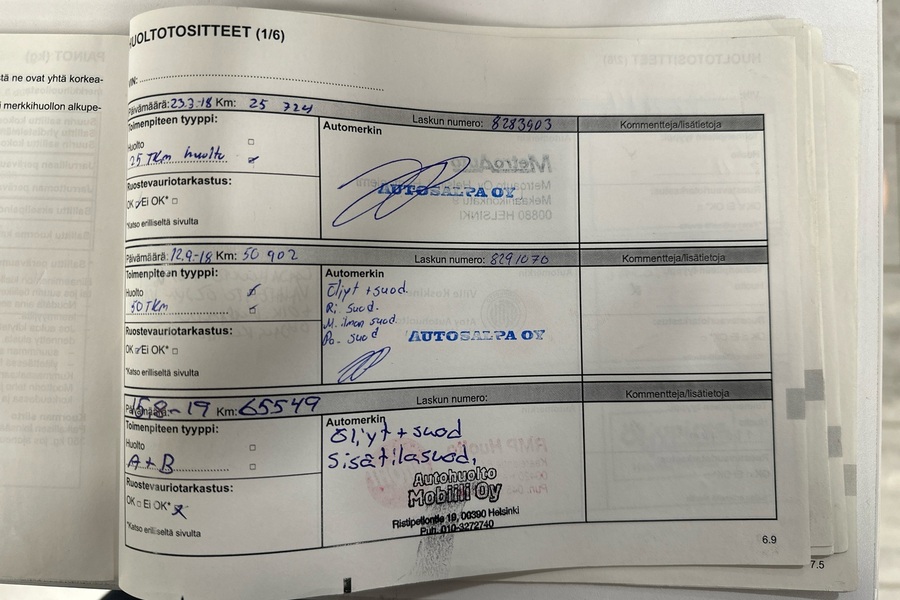 stä ne ovat yhtä korkea-
i merkkihuollon alkupe-
HUOLTOTOSITTEET (1/6)
VIN:
Päivämäärä: 23.3-18 Km: 25 724
Laskun numero: 8283903
Kommentteja/lisätietoja
Toimenpiteen tyyppi:
Huolto
25 TKm huolto
Ruostevauriotarkastus:
OK Ei OK*
*Katso erilliseltä sivulta
Automerkin
AUTOSALPA OY
Päivämäärä: 12.9-18 Km: 50 902
Laskun numero: 8291070
Kommentteja/lisätietoja
Toimenpiteen tyyppi:
Huolto
50 TKm
Ruostevauriotarkastus:
OK Ei OK*
*Katso erilliseltä sivulta
Automerkin
Öljyt + suod.
Ri. suod.
M. ilman suod.
Po. suod
AUTOSALPA OY
Päivämäärä: 15.8-19 Km: 65549
Laskun numero:
Kommentteja/lisätietoja
Toimenpiteen tyyppi:
Huolto
A+B
Ruostevauriotarkastus:
OK Ei OK*
*Katso erilliseltä sivulta
Automerkin
Öljyt + suod
Sisätilasuod,
Autohuolto
Mobiili Oy
Ristipellontie 19, 00390 Helsinki
Puh. 010-3272740
6.9
7.5